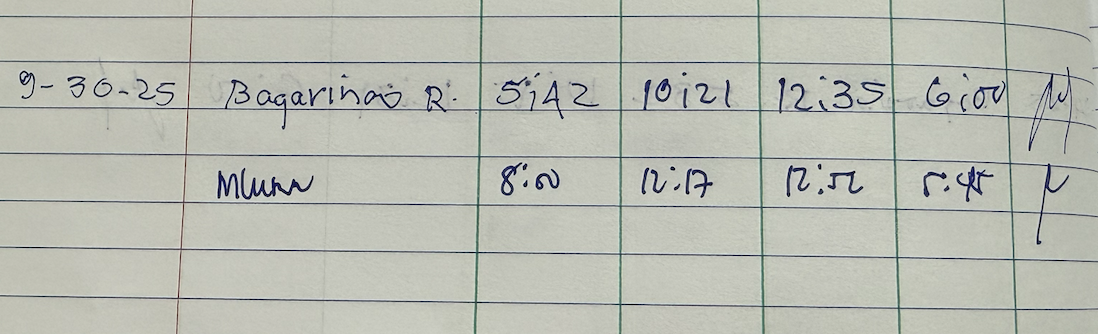 9-30-25 Bagarinao R. 5:42 10:21 12:35 6:00
8:00 12:17 12:52 5:45